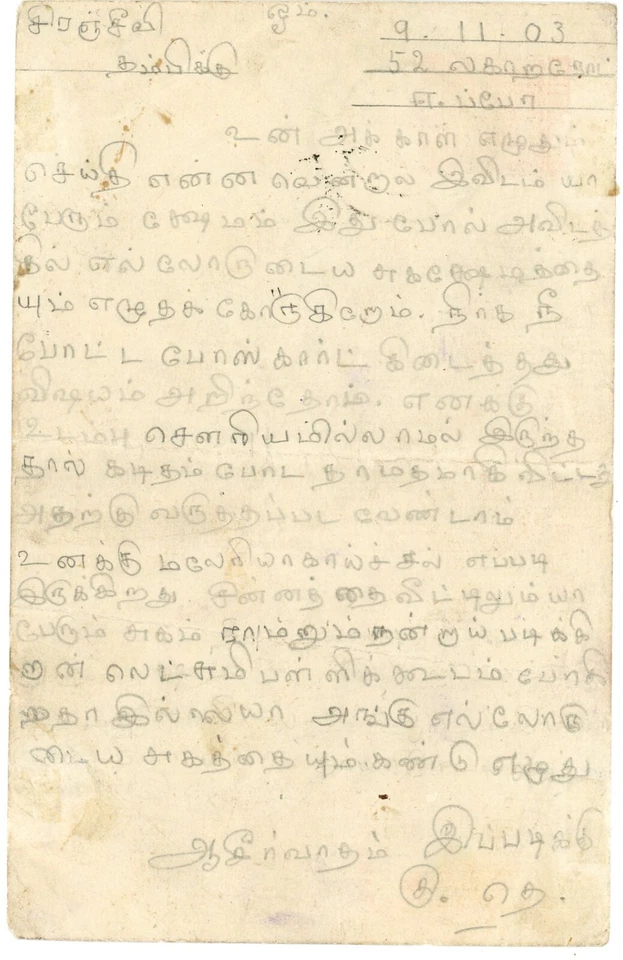 ஓம்.
சிரஞ்சீவி
தம்பிக்கு
9. 11. 03
52 லகாறரோட்
ஈ. ப்போ
உன் அக்காள் எழுதும்
செய்தி என்ன வென்றால் இவிடம் யா
பேரும் க்ஷேமம் இது போல் அவிடத்
தில் எல்லோருடைய சுகக்ஷேமத்தை
யும் எழுதக் கோருகிறேம். நிர்த நீ
போட்ட போஸ்கார்ட் கிடைத்தது
விஷயம் அறிந்தோம். எனக்கு
உடம்பு சௌரியமில்லாமல் இருந்த
தால் கடிதம் போட தாமதமாகி விட்டது
அதற்கு வருத்தப்பட வேண்டாம்
உனக்கு மலேரியாகாய்ச்சல் எப்படி
இருக்கிறது சின்னத்தை வீட்டிலும் யா
பேரும் சுகம் ராம்னும் நன்றாய் படிக்கி
றன் லெட்சுமி பள்ளிக்கூடம் போகி
றதா இல்லியா அங்கு எல்லோரு
டைய சுகத்தையும் கண்டு எழுது
ஆசீர்வாதம் இப்படிக்கு
கு. தெ.